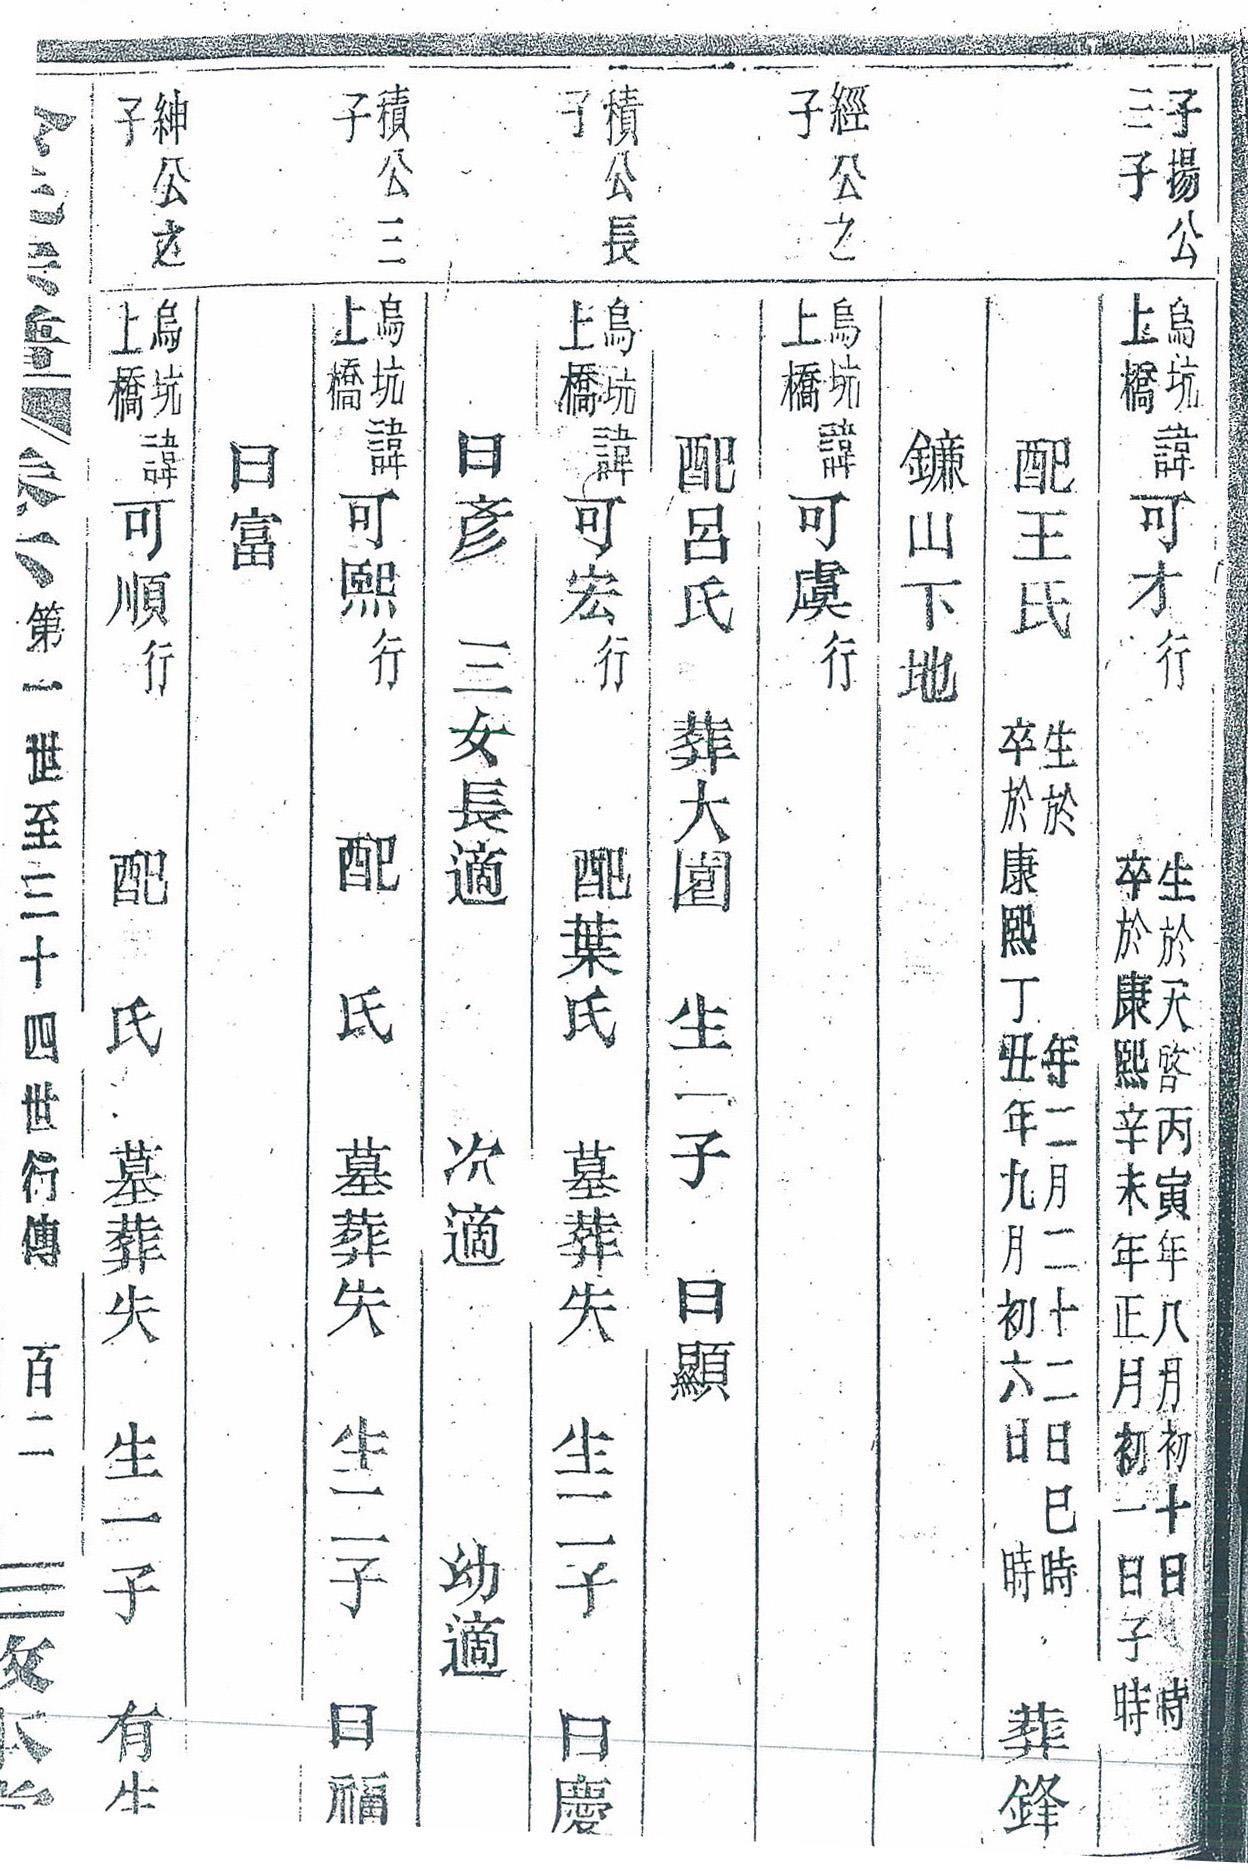 子揚公
三子
烏坑
上橋
諱可才行
生於天啓丙寅年八月初十日 時
卒於康熙辛未年正月初一日子時
配王氏
生於 年二月二十二日巳時
卒於康熙丁丑年九月初六日 時
葬鋒
鐮山下地
經公之
子
烏坑
上橋
諱可虞行
配呂氏 葬大園 生一子 曰顯
積公長
子
烏坑
上橋
諱可宏行 配葉氏 墓葬失 生二子 曰慶
曰彥 三女長適 次適 幼適
積公三
子
烏坑
上橋
諱可熙行 配 氏 墓葬失 生二子 曰福
曰富
紳公之
子
烏坑
上橋
諱可順行 配 氏 墓葬失 生一子 有生
第一世至三十四世行傳 百二